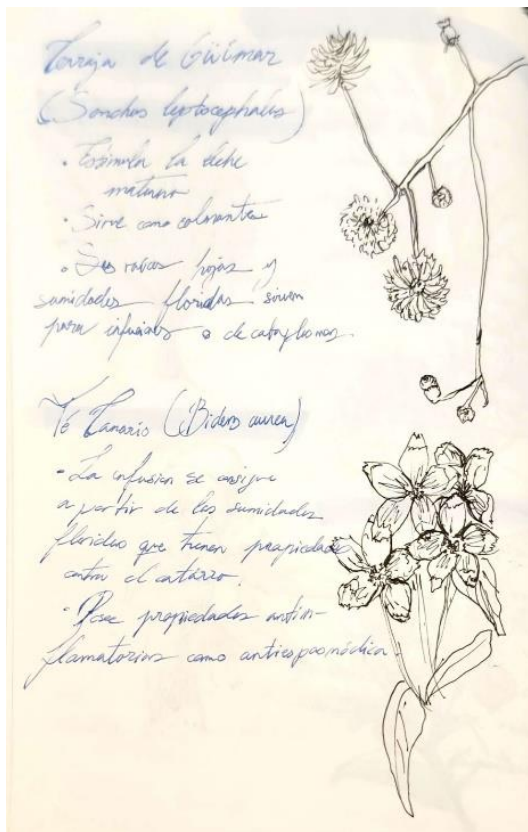 Lavaja de Güímar
(Sonchus leptocephalus)
• Estimula la leche
materna
• Sirve como calmante
• Sus raíces hojas y
sumidades floridas sirven
para infusiones o de cataplasmas.
Té Canario (Bidens aurea)
• La infusión se consigue
a partir de las sumidades
floridas que tienen propiedades
contra el catarro.
• Posee propiedades antiin-
flamatorias como antiespasmódica.